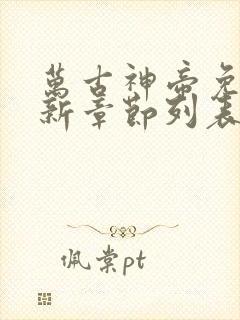 萬古神帝免
新章節列表
佩棠pt